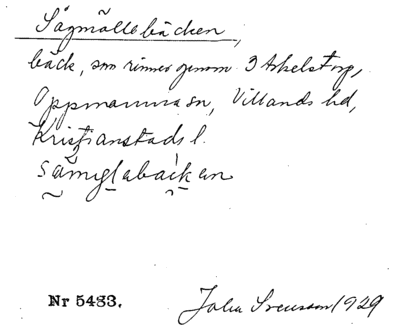 Sågmöllebäcken,
bäck, som rinner genom 3 Arkelstorp,
Oppmanna sn, Villands hd,
Kristianstads l.
såmglabaikan
Nr 5483.
John Svensson 1929